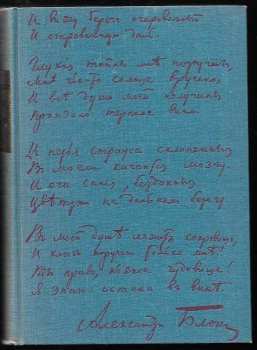 И вижу берегъ очарованный
И очарованную даль.
Глухія тайны мнѣ поручены,
Мнѣ чье-то солнце вручено,
И всѣ души моей излучины
Пронзило терпкое вино.
И перья страуса склоненныя
Въ моемъ качаются мозгу,
И очи синія, бездонныя
Цвѣтутъ на дальнемъ берегу.
Въ моей душѣ лежитъ сокровище,
И ключъ порученъ только мнѣ!
Ты право, пьяное чудовище!
Я знаю: истина въ винѣ.
Александръ Блокъ